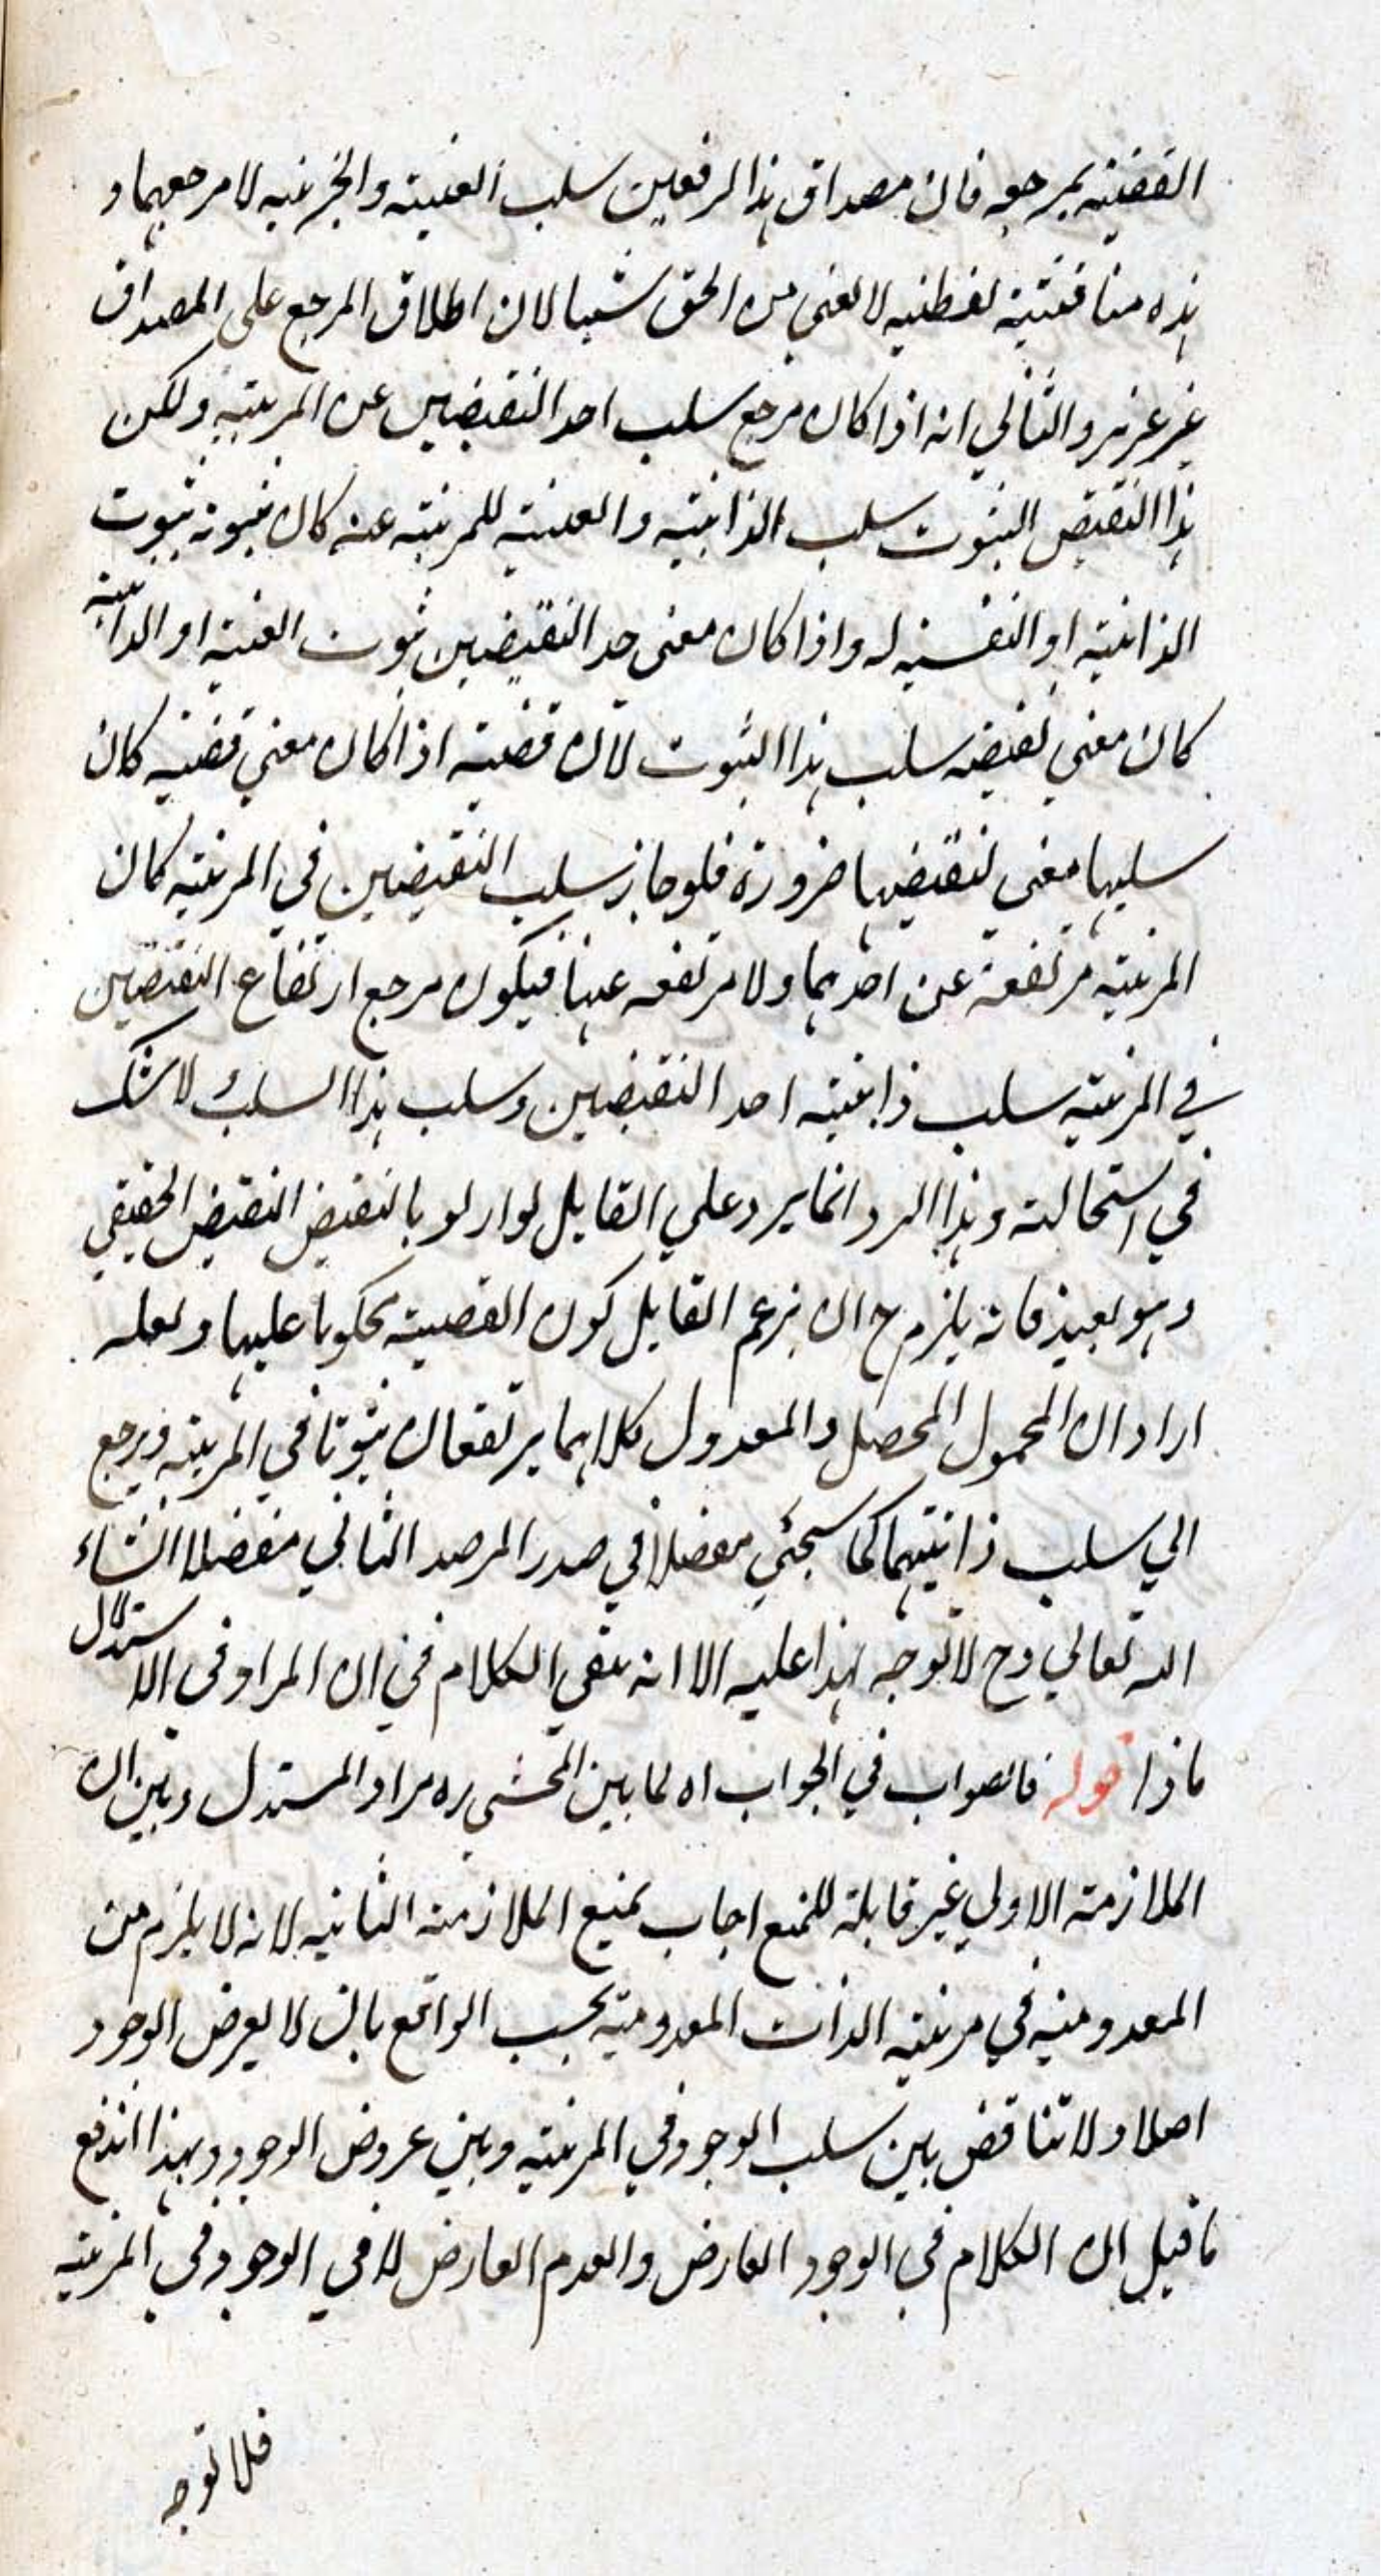 القضية بمرجعه فان مصداق هذا الرفعين سلب العينية والجزئية لا مرجعهما و
هذه مناقشة لفظية لا تغني من الحق شيئا لان اطلاق المرجع على المصداق
غير عزيز والثاني انه اذا كان مرجع سلب احد النقيضين عن المرتبة ولكن
هذا النقيض الثبوت سلب الذاتية والعينية للمرتبة عنه كان ثبوته ثبوت
الذاتية او النفسية له واذا كان معنى احد النقيضين ثبوت العينية او الذاتية
كان معني نقيضه سلب هذا الثبوت لان قضية اذا كان معني قضية كان
سلبها معني لنقيضها ضرورة فلو جاز سلب النقيضين في المرتبة كان
المرتبة مرتفعة عن احدهما ولا مرتفعه عنها فيكون مرجع ارتفاع النقيضين
في المرتبة سلب ذاتية احد النقيضين وسلب هذا السلب لا شك
في استحالته وهذا الرد انما يرد علي القايل لو اراد بالنقيض النقيض الحقيقي
وهو بعيد فانه يلزم ح ان يزعم القايل كون القضية محكوما عليها ولعله
اراد ان المحمول المحصل والمعدول كلاهما يرتفعان ثبوتا في المرتبة ويرجع
الي سلب ذاتيتهما كما سيجئ مفصلا في صدر المرصد الثاني مفصلا انشاء
الله تعالي وح لا توجه لهذا عليه الا انه بقي الكلام في ان المراد في الاستدلال
ماذا قوله فالصواب في الجواب اه لما بين المحشي ره مراد المستدل وبين ان
الملازمة الاولي غير قابلة للمنع اجاب بمنع الملازمة الثانية لانه لا يلزم من
المعدومية في مرتبة الذات المعدومية بحسب الواقع بان لا يعرض الوجود
اصلا ولا تناقض بين سلب الوجود في المرتبة وبين عروض الوجود وبهذا اندفع
ما قيل ان الكلام في الوجود العارض والعدم العارض لا في الوجود في المرتبة
فلا توجه